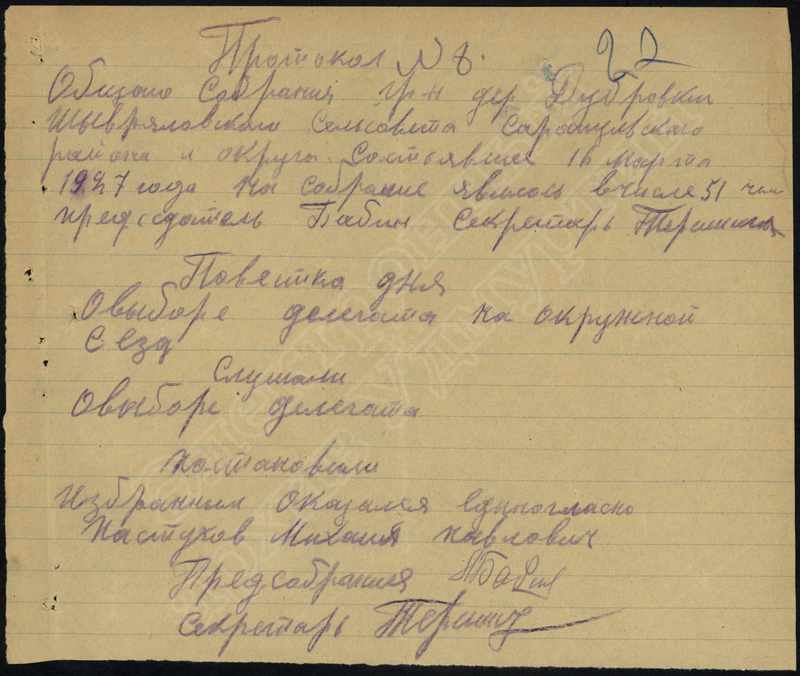 Протокол N 8.
22
Общаго Собрания гр-н дер Дубровки
Шевыряловского сельсовета Сарапулского
района и округа состоявшея 16 марта
1927 года на собрание явилось вчисле 51 чел
председатель Бабин Секретарь
Повестка дня
Овыборе делегата на окружной
Сезд
Слушали
Овыборе делегата
Постановили
Избранным оказался единогласно
Пастухов Михаил Павлович
Предсобрания Бабин
Секретарь